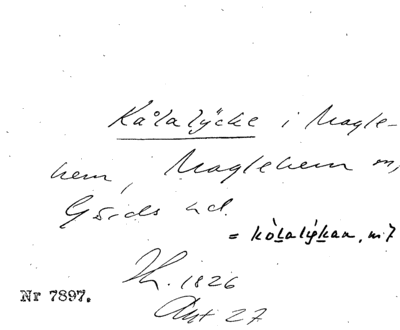 Kålalycke i Magle-
hem, Maglehem sn,
Gärds hd.
= kòlalýkan, nr 7
Lh. 1826
Akt 27
Nr 7897.